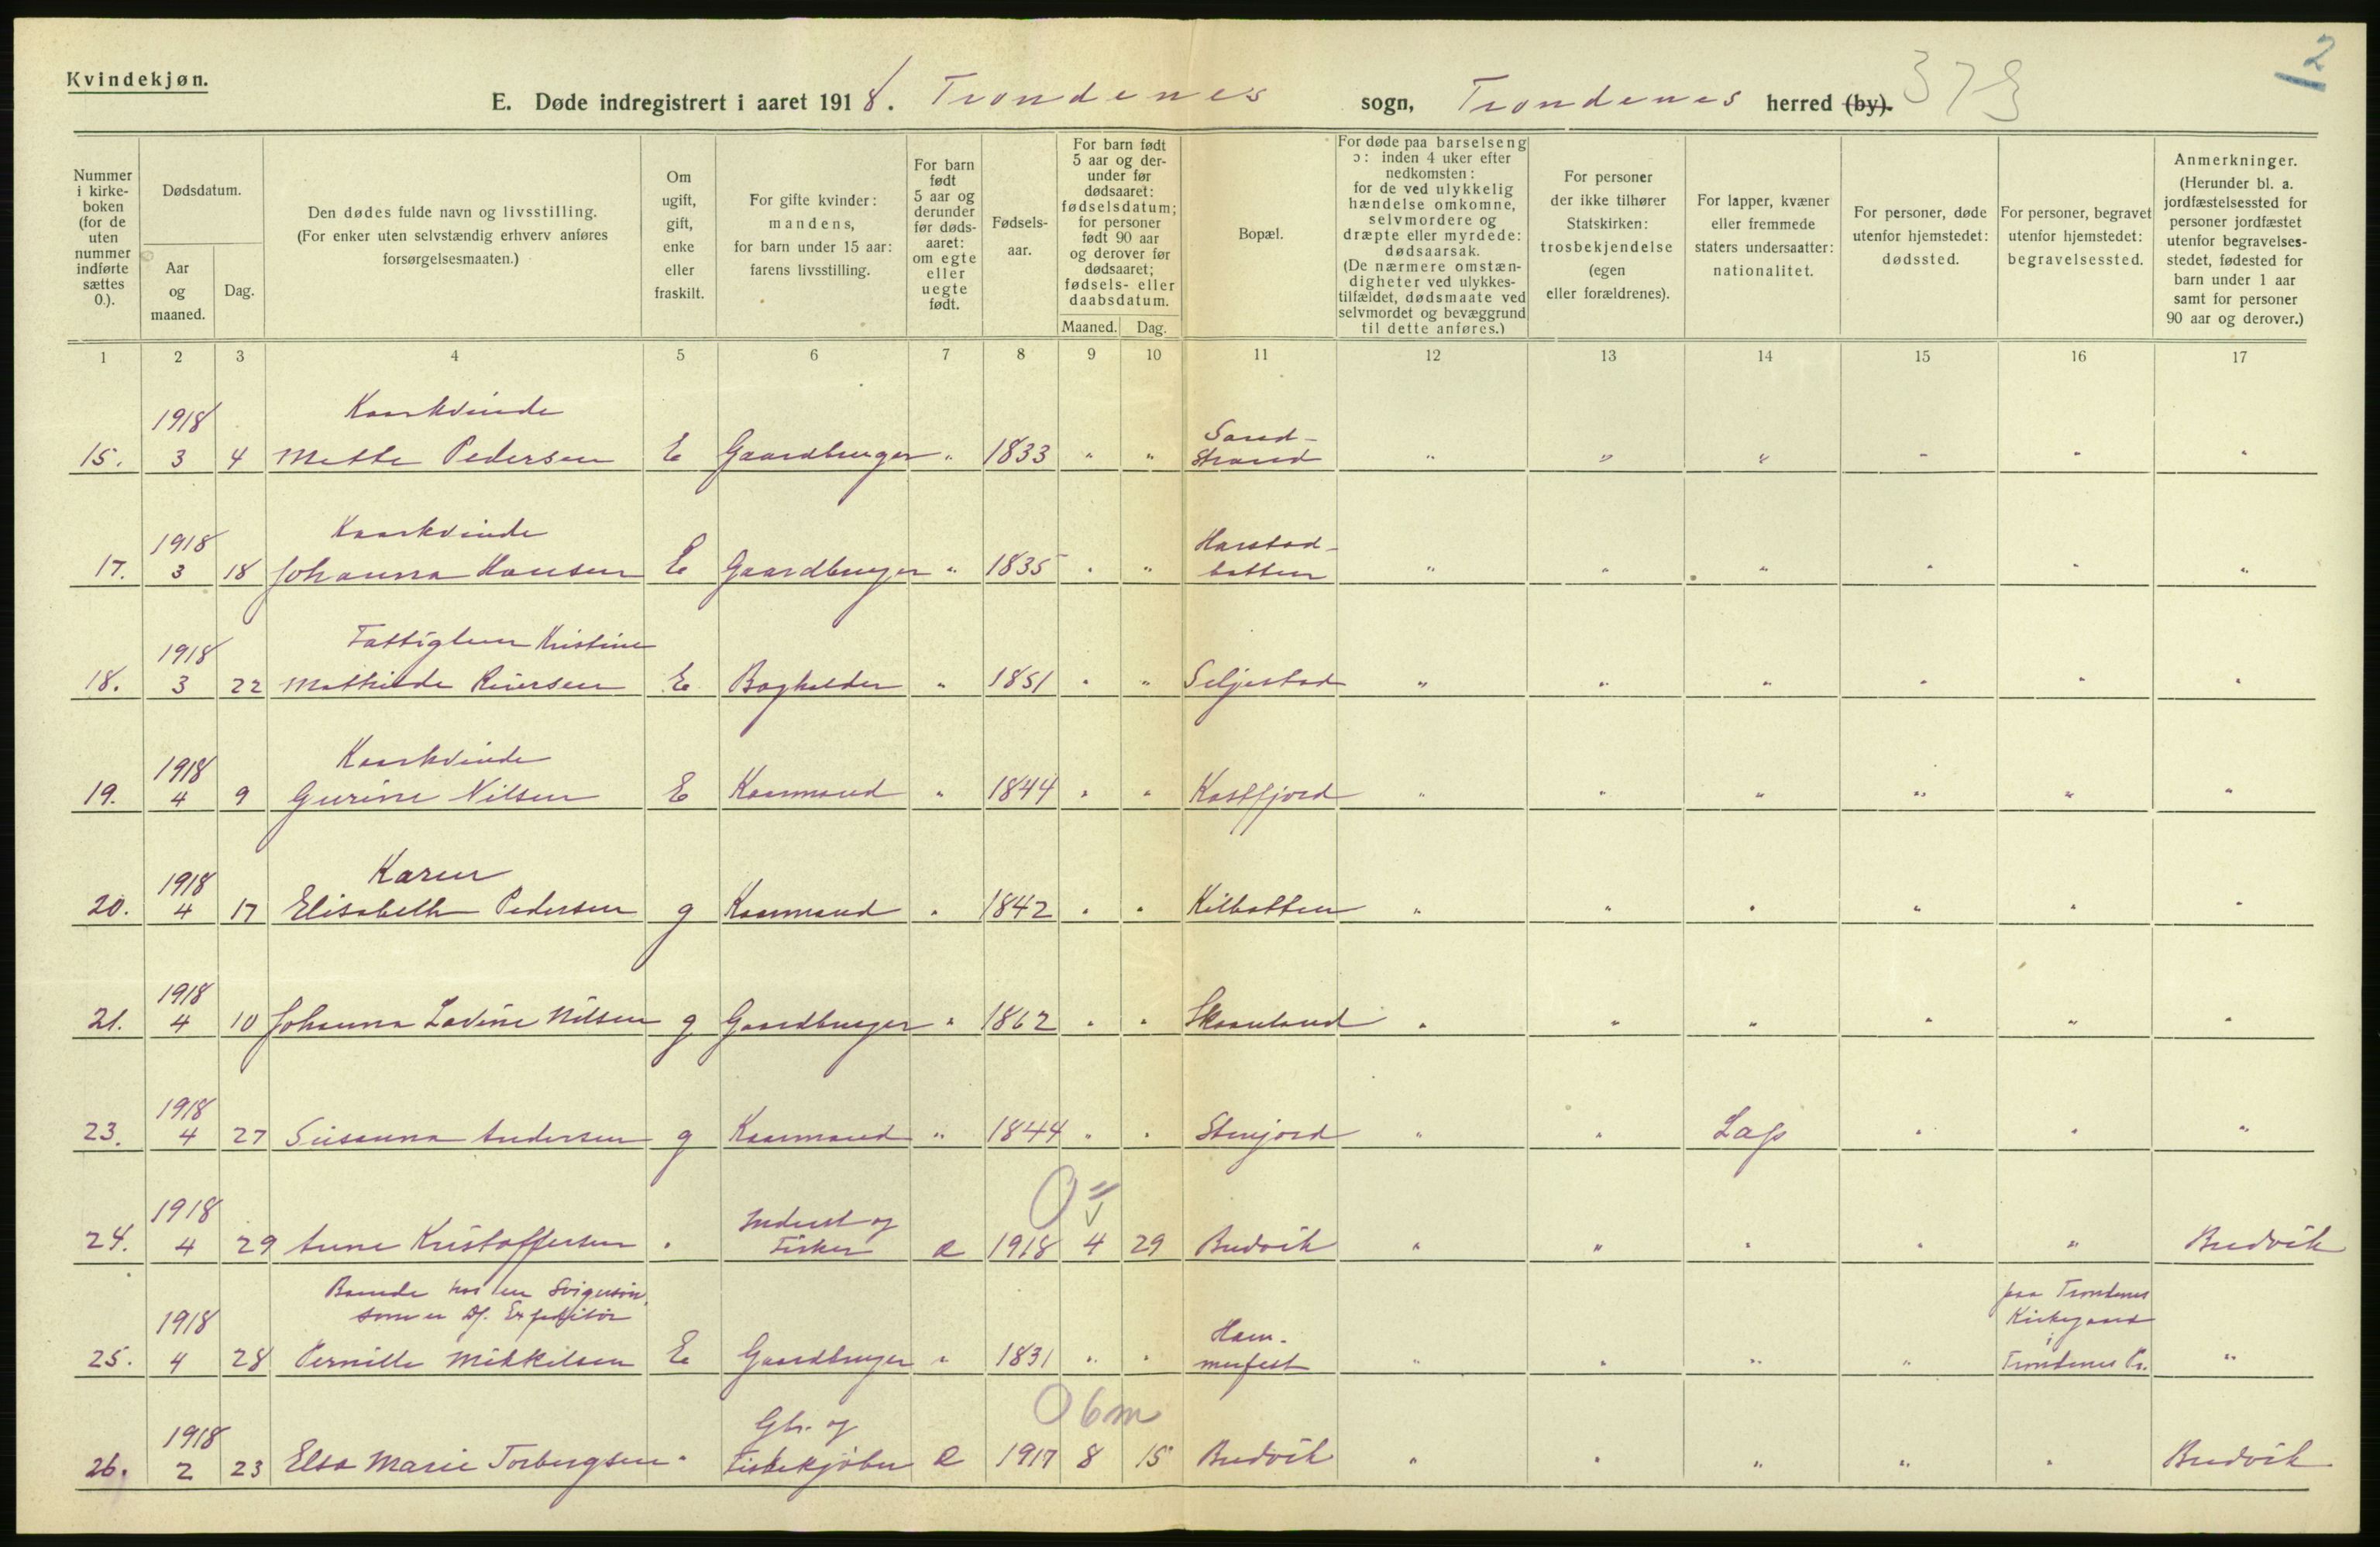 Kvindekjøn.
2
E. Døde indregistrert i aaret 1918. Trondenes sogn, Trondenes herred (by). 373
Nummer i kirke- boken (for de uten nummer indførte sættes 0.).
Dødsdatum.
Aar og maaned.
Dag.
Den dødes fulde navn og livsstilling.
(For enker uten selvstændig erhverv anføres
forsørgelsesmaaten.)
Om ugift, gift, enke eller fraskilt.
For gifte kvinder: mandens, for barn under 15 aar: farens livsstilling.
For barn født 5 aar og derunder før døds- aaret: om egte eller uegte født.
Fødsels- aar.
For barn født 5 aar og der- under før dødsaaret: fødselsdatum; for personer født 90 aar og derover før dødsaaret; fødsels- eller daabsdatum.
Maaned. Dag.
Bopæl.
For døde paa barselseng ɔ: inden 4 uker efter nedkomsten: for de ved ulykkelig hændelse omkomne, selvmordere og dræpte eller myrdede: dødsaarsak. (De nærmere omstæn- digheter ved ulykkes- tilfældet, dødsmaate ved selvmordet og bevæggrund til dette anføres.)
For personer der ikke tilhører Statskirken: trosbekjendelse (egen eller forældrenes).
For lapper, kvæner eller fremmede staters undersaatter: nationalitet.
For personer, døde utenfor hjemstedet: dødssted.
For personer, begravet utenfor hjemstedet: begravelsessted.
Anmerkninger. (Herunder bl. a. jordfæstelsessted for personer jordfæstet utenfor begravelses- stedet, fødested for barn under 1 aar samt for personer 90 aar og derover.)
1 2 3 4 5 6 7 8 9 10 11 12 13 14 15 16 17
1918 Kaarkvinde Sand-
15. 3 4 Mette Pedersen E Gaardbruger " 1833 " " Strand " " " " " "
1918 Kaarkvinde Harstad-
17. 3 18 Johanna Hansen E Gaardbruger " 1835 " " botten " " " " " "
1918 Fattiglem Kristine
18. 3 22 Mathilde Reiersen E Bogholder " 1851 " " Seljestad " " " " " "
1918 Kaarkvinde
19. 4 9 Gurine Nilsen E Kaarmand " 1844 " " Kastfjord " " " " " "
1918 Karen
20. 4 17 Elisabeth Pedersen g Kaarmand " 1842 " " Kilbotten " " " " " "
1918
21. 4 10 Johanna Lavine Nilsen g Gaardbruger " 1862 " " Skaanland " " " " " "
1918
23. 4 27 Susanna Andersen g Kaarmand " 1844 " " Stenjord " " Lap " " "
1918 Inderst og 0 "
24. 4 29 Anne Kristoffersen " Fisker e 1918 4 29 Bredvik " " " " " Bredvik
1918 Boende hos sin Svigersøn, som er Df. Expeditør Ham- paa Trondenes Kirkegaard i
25. 4 28 Pernille Mikkelsen E Gaardbruger " 1831 " " merfest " " " " Trondenes Pr. "
1918 Gbr. og 0 6 m
26. 2 23 Elsa Marie Torbergsen " Fiskekjøber e 1917 8 15 Bredvik " " " " " Bredvik